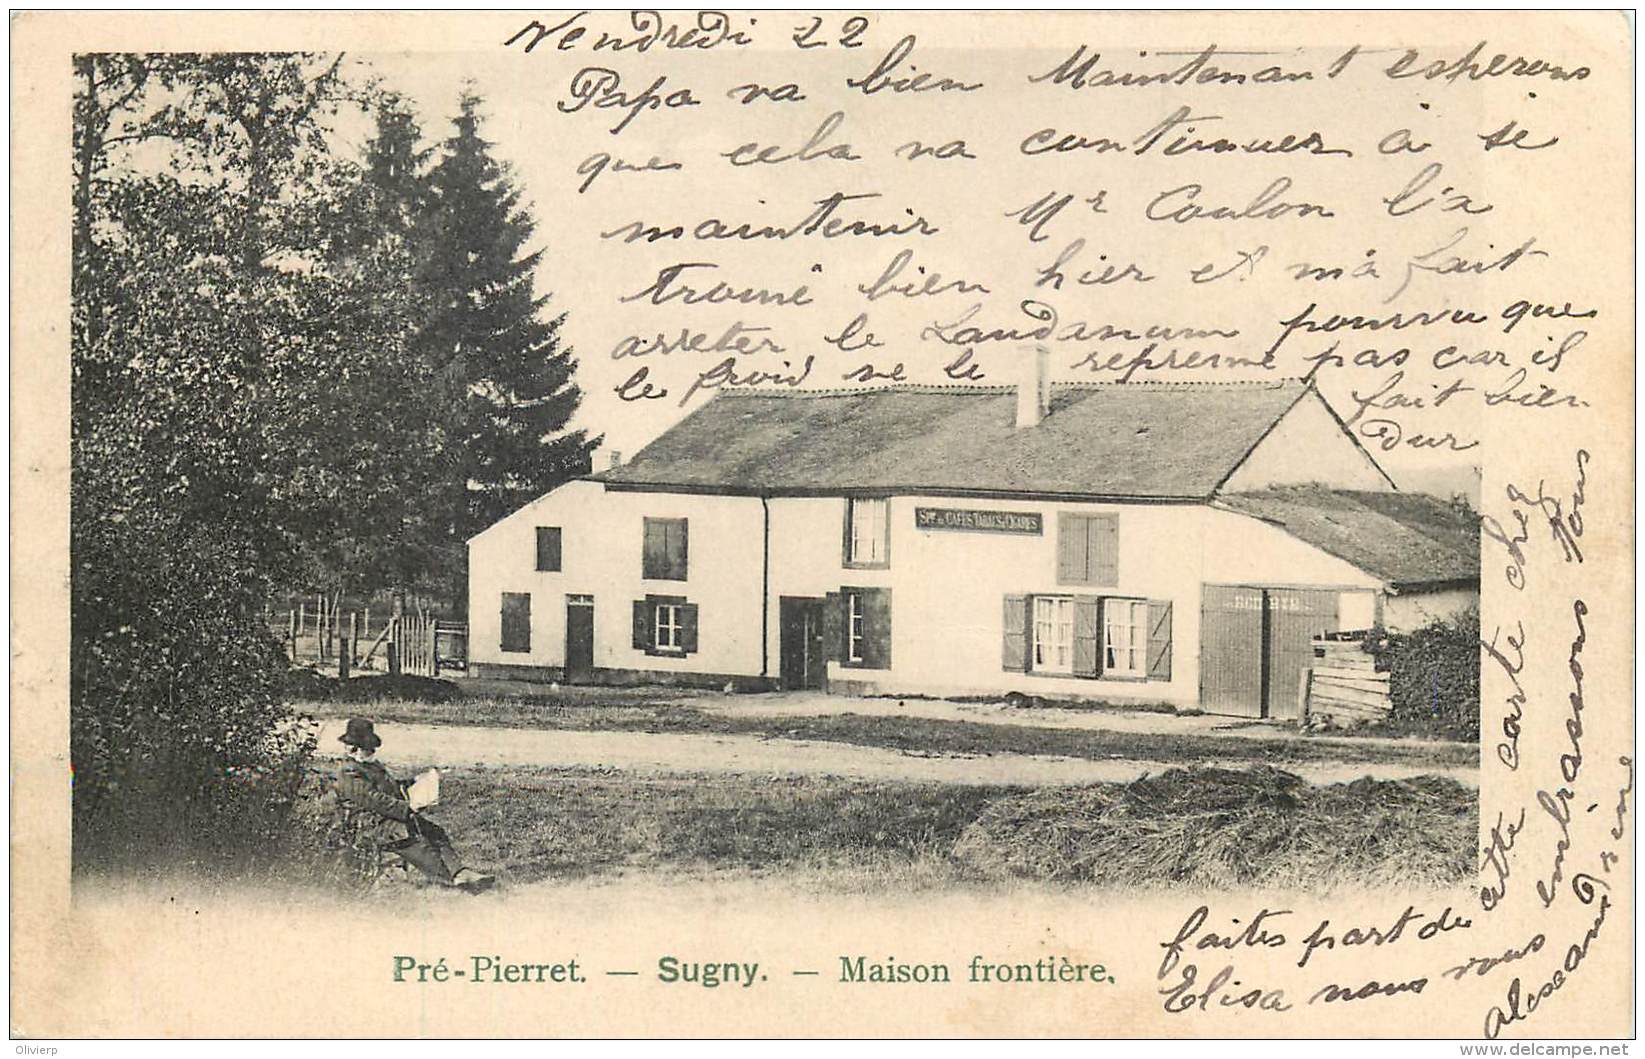 Vendredi 22
Papa va bien Maintenant esperons
que cela va continuer à se
maintenir Mr Coulon l'a
trouvé bien hier et m'a fait
arreter le Laudanum pourvu que
le froid ne le reprenne pas car il
fait bien
dur
SPté de CAFÉS TABACS & CIGARES
faites part de cette carte chez
Elisa nous vous embrassons tous
Pré-Pierret. — Sugny. — Maison frontière.
Olivierp
www.delcampe.net